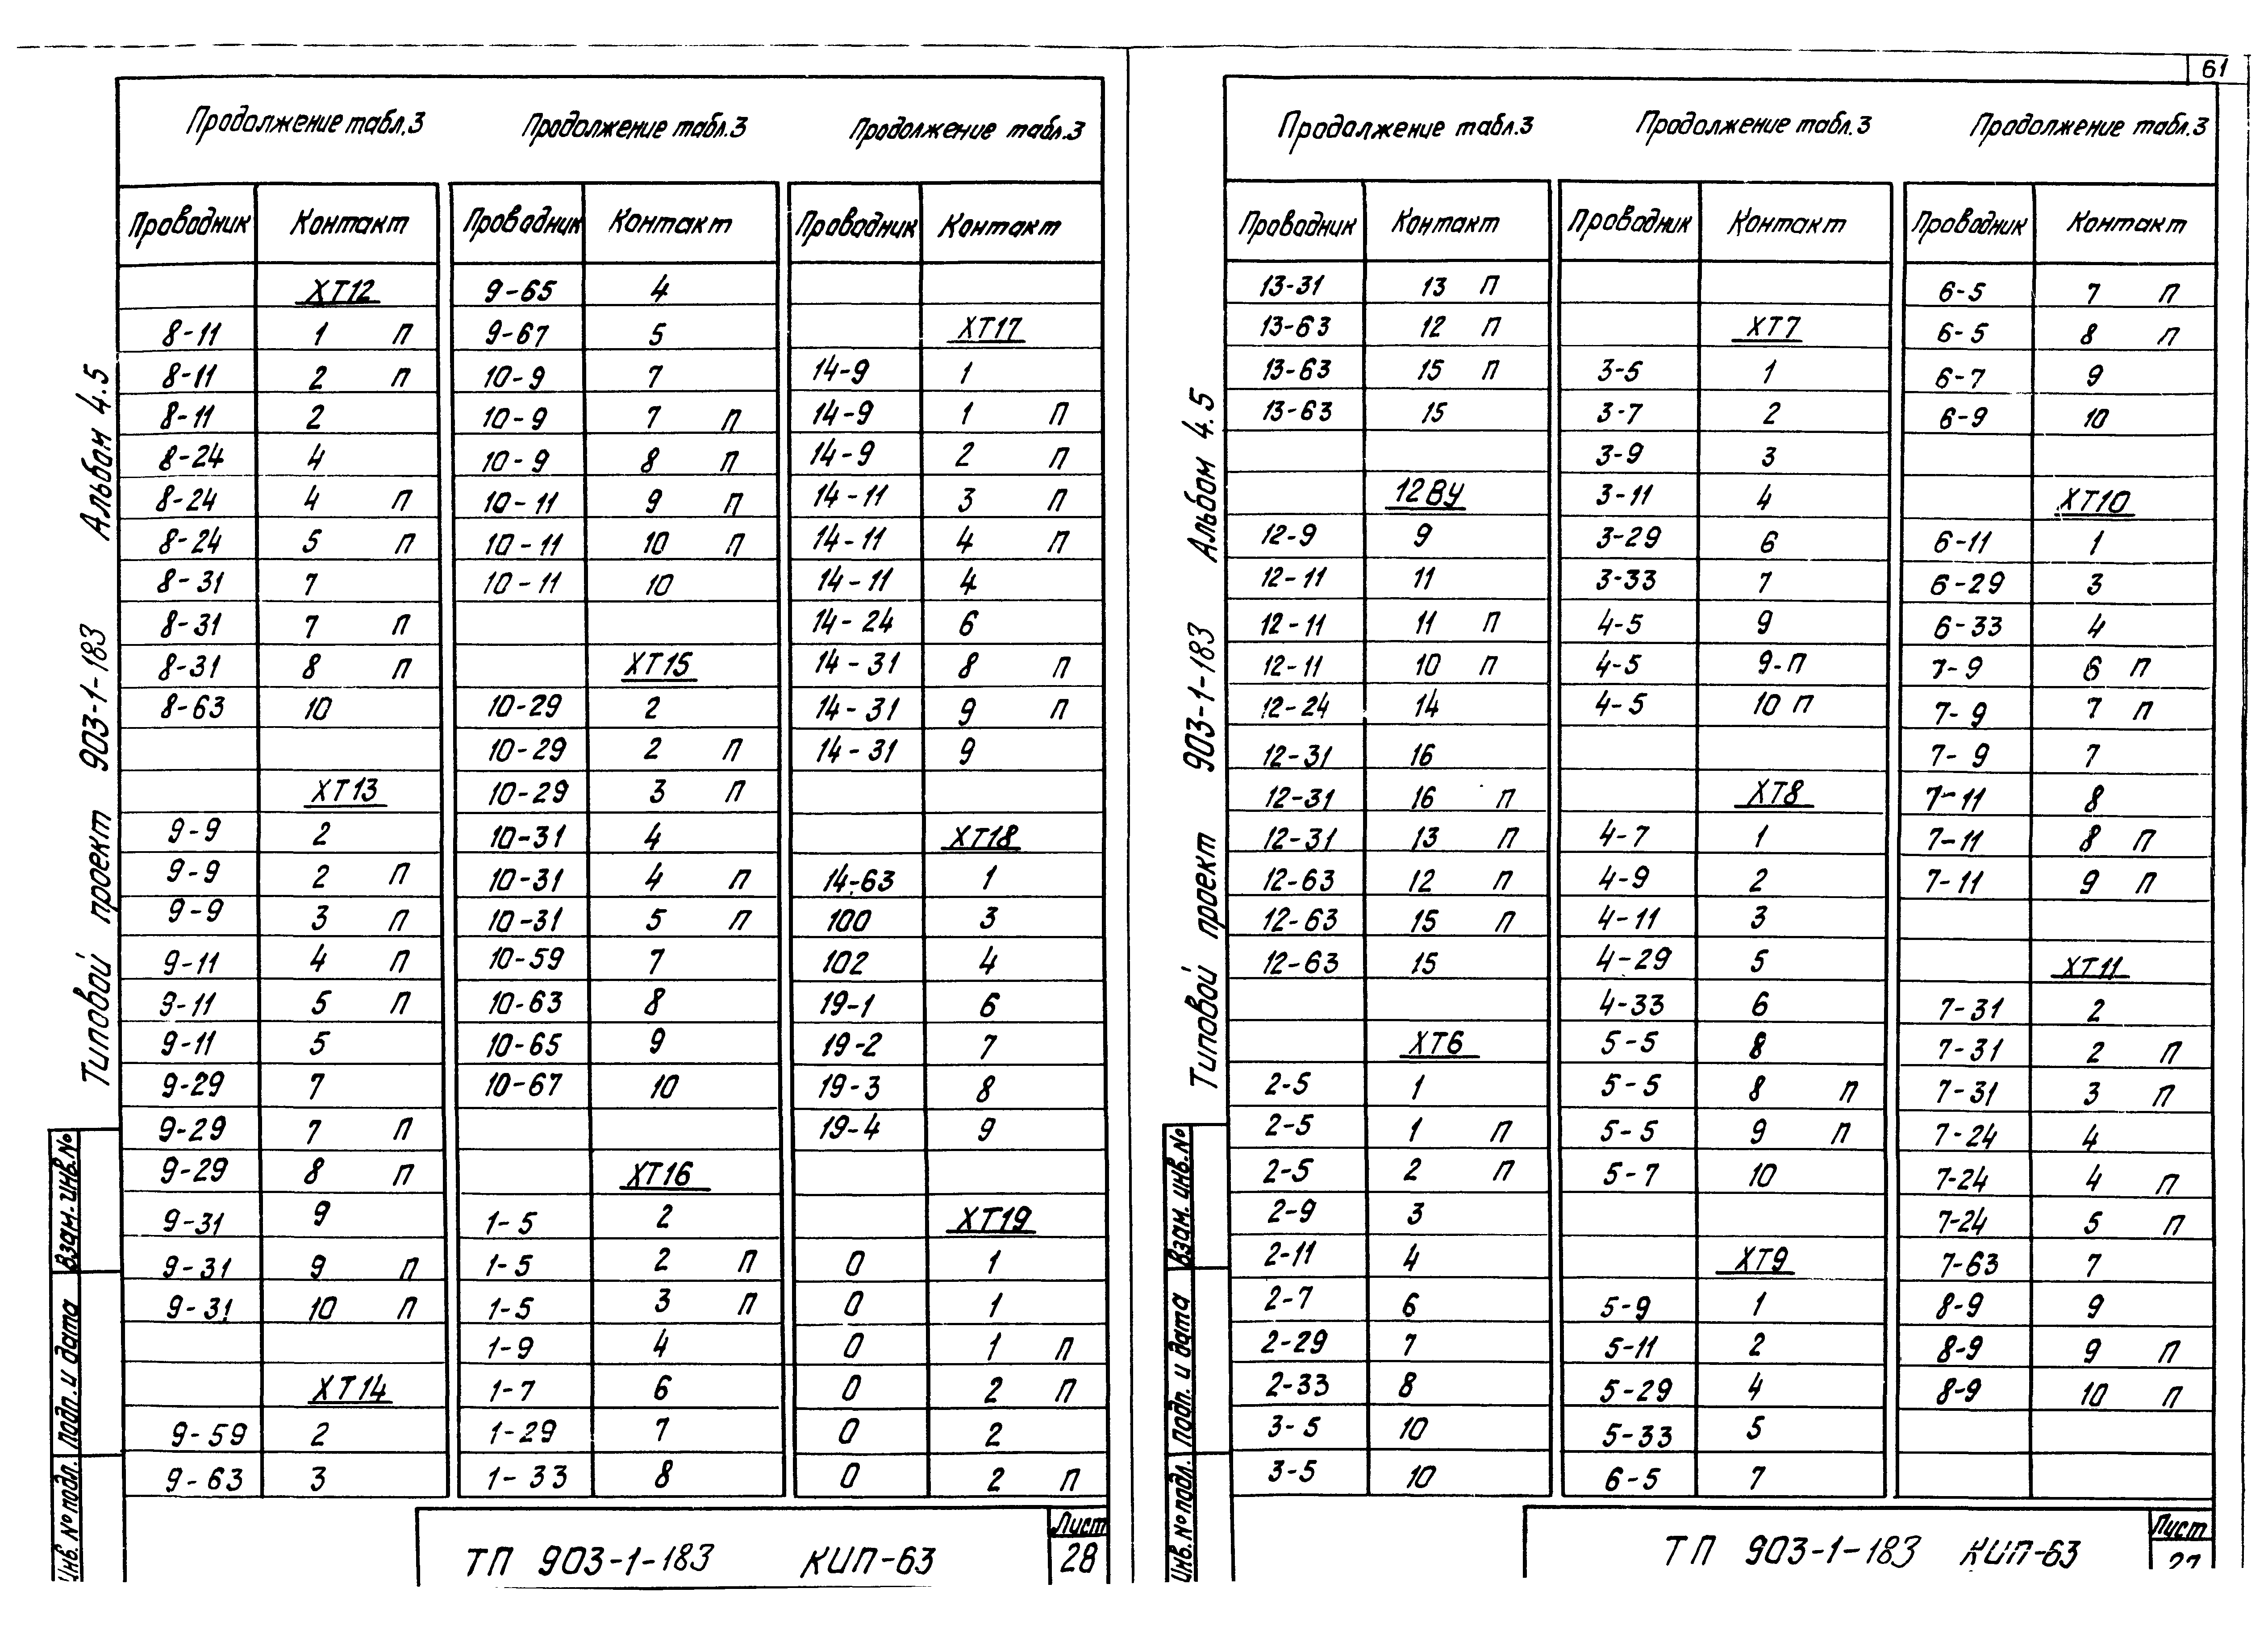 61
Продолжение табл.3 Продолжение табл.3 Продолжение табл.3
Проводник Контакт Проводник Контакт Проводник Контакт
ХТ12 9-65 4
8-11 1 П 9-67 5 ХТ17
8-11 2 П 10-9 7 14-9 1
8-11 2 10-9 7 П 14-9 1 П
8-24 4 10-9 8 П 14-9 2 П
8-24 4 П 10-11 9 П 14-11 3 П
8-24 5 П 10-11 10 П 14-11 4 П
8-31 7 10-11 10 14-11 4
8-31 7 П 14-24 6
8-31 8 П ХТ15 14-31 8 П
8-63 10 10-29 2 14-31 9 П
10-29 2 П 14-31 9
ХТ13 10-29 3 П
9-9 2 10-31 4 ХТ18
9-9 2 П 10-31 4 П 14-63 1
9-9 3 П 10-31 5 П 100 3
9-11 4 П 10-59 7 102 4
9-11 5 П 10-63 8 19-1 6
9-11 5 10-65 9 19-2 7
9-29 7 10-67 10 19-3 8
9-29 7 П 19-4 9
9-29 8 П ХТ16
9-31 9 1-5 2 ХТ19
9-31 9 П 1-5 2 П 0 1
9-31 10 П 1-5 3 П 0 1
1-9 4 0 1 П
ХТ14 1-7 6 0 2 П
9-59 2 1-29 7 0 2
9-63 3 1-33 8 0 2 П
Типовой проект 903-1-183 Альбом 4.5
Взам. инв.№
Подп. и дата
Инв.№ подл.
ТП 903-1-183 КИП-63
Лист
28
Продолжение табл.3 Продолжение табл.3 Продолжение табл.3
Проводник Контакт Проводник Контакт Проводник Контакт
13-31 13 П 6-5 7 П
13-63 12 П ХТ7 6-5 8 П
13-63 15 П 3-5 1 6-7 9
13-63 15 3-7 2 6-9 10
3-9 3
12ВУ 3-11 4 ХТ10
12-9 9 3-29 6 6-11 1
12-11 11 3-33 7 6-29 3
12-11 11 П 4-5 9 6-33 4
12-11 10 П 4-5 9-П 7-9 6 П
12-24 14 4-5 10 П 7-9 7 П
12-31 16 7-9 7
12-31 16 П ХТ8 7-11 8
12-31 13 П 4-7 1 7-11 8 П
12-63 12 П 4-9 2 7-11 9 П
12-63 15 П 4-11 3
12-63 15 4-29 5 ХТ11
4-33 6 7-31 2
ХТ6 5-5 8 7-31 2 П
2-5 1 5-5 8 П 7-31 3 П
2-5 1 П 5-5 9 П 7-24 4
2-5 2 П 5-7 10 7-24 4 П
2-9 3 7-24 5 П
2-11 4 ХТ9 7-63 7
2-7 6 5-9 1 8-9 9
2-29 7 5-11 2 8-9 9 П
2-33 8 5-29 4 8-9 10 П
3-5 10 5-33 5
3-5 10 6-5 7
Типовой проект 903-1-183 Альбом 4.5
Взам. инв.№
Подп. и дата
Инв.№ подл.
ТП 903-1-183 КИП-63
Лист